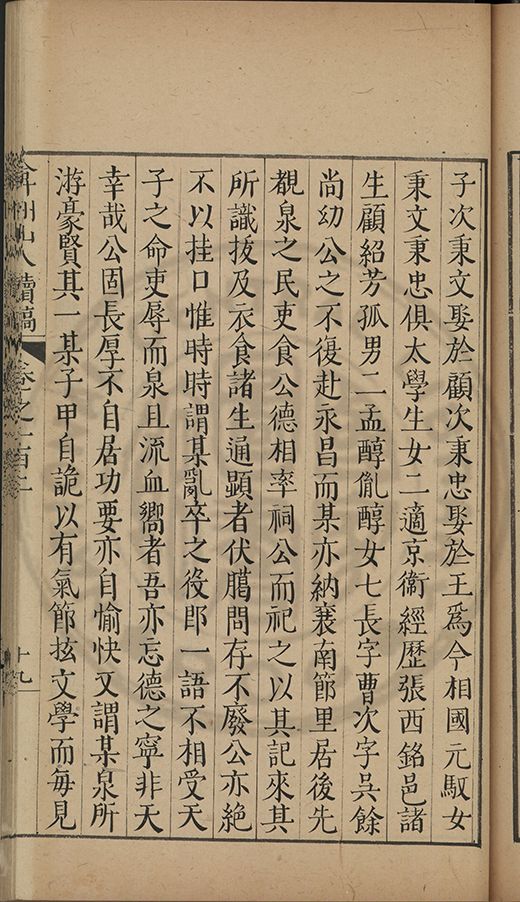 子次秉文娶於顧次秉忠娶於王爲今相國元馭女
秉文秉忠俱太學生女二適京衛經歷張西銘邑諸
生顧紹芳孤男二孟醇胤醇女七長字曹次字吳餘
尚幼公之不復赴永昌而某亦納裴南節里居後先
覩泉之民吏食公德相率祠公而祀之以其記來其
所識拔及衣食諸生通顯者伏臈問存不廢公亦絕
不以挂口惟時時謂某亂卒之役卽一語不相受天
子之命吏辱而泉且流血嚮者吾亦忘德之寧非天
幸哉公固長厚不自居功要亦自愉快又謂某泉所
游豪賢其一某子甲自詭以有氣節抎文學而每見
弇州山人續稿
卷之一百二
十九